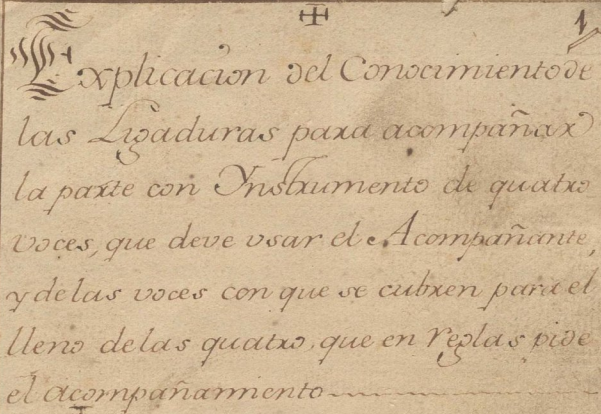 ✠ 1
Explicacion del Conocimiento de
las Ligaduras para acompañar
la parte con Ynstrumento de quatro
voces, que deve vsar el Acompañante,
y de las voces con que se cubren para el
lleno de las quatro, que en reglas pide
el acompañamiento